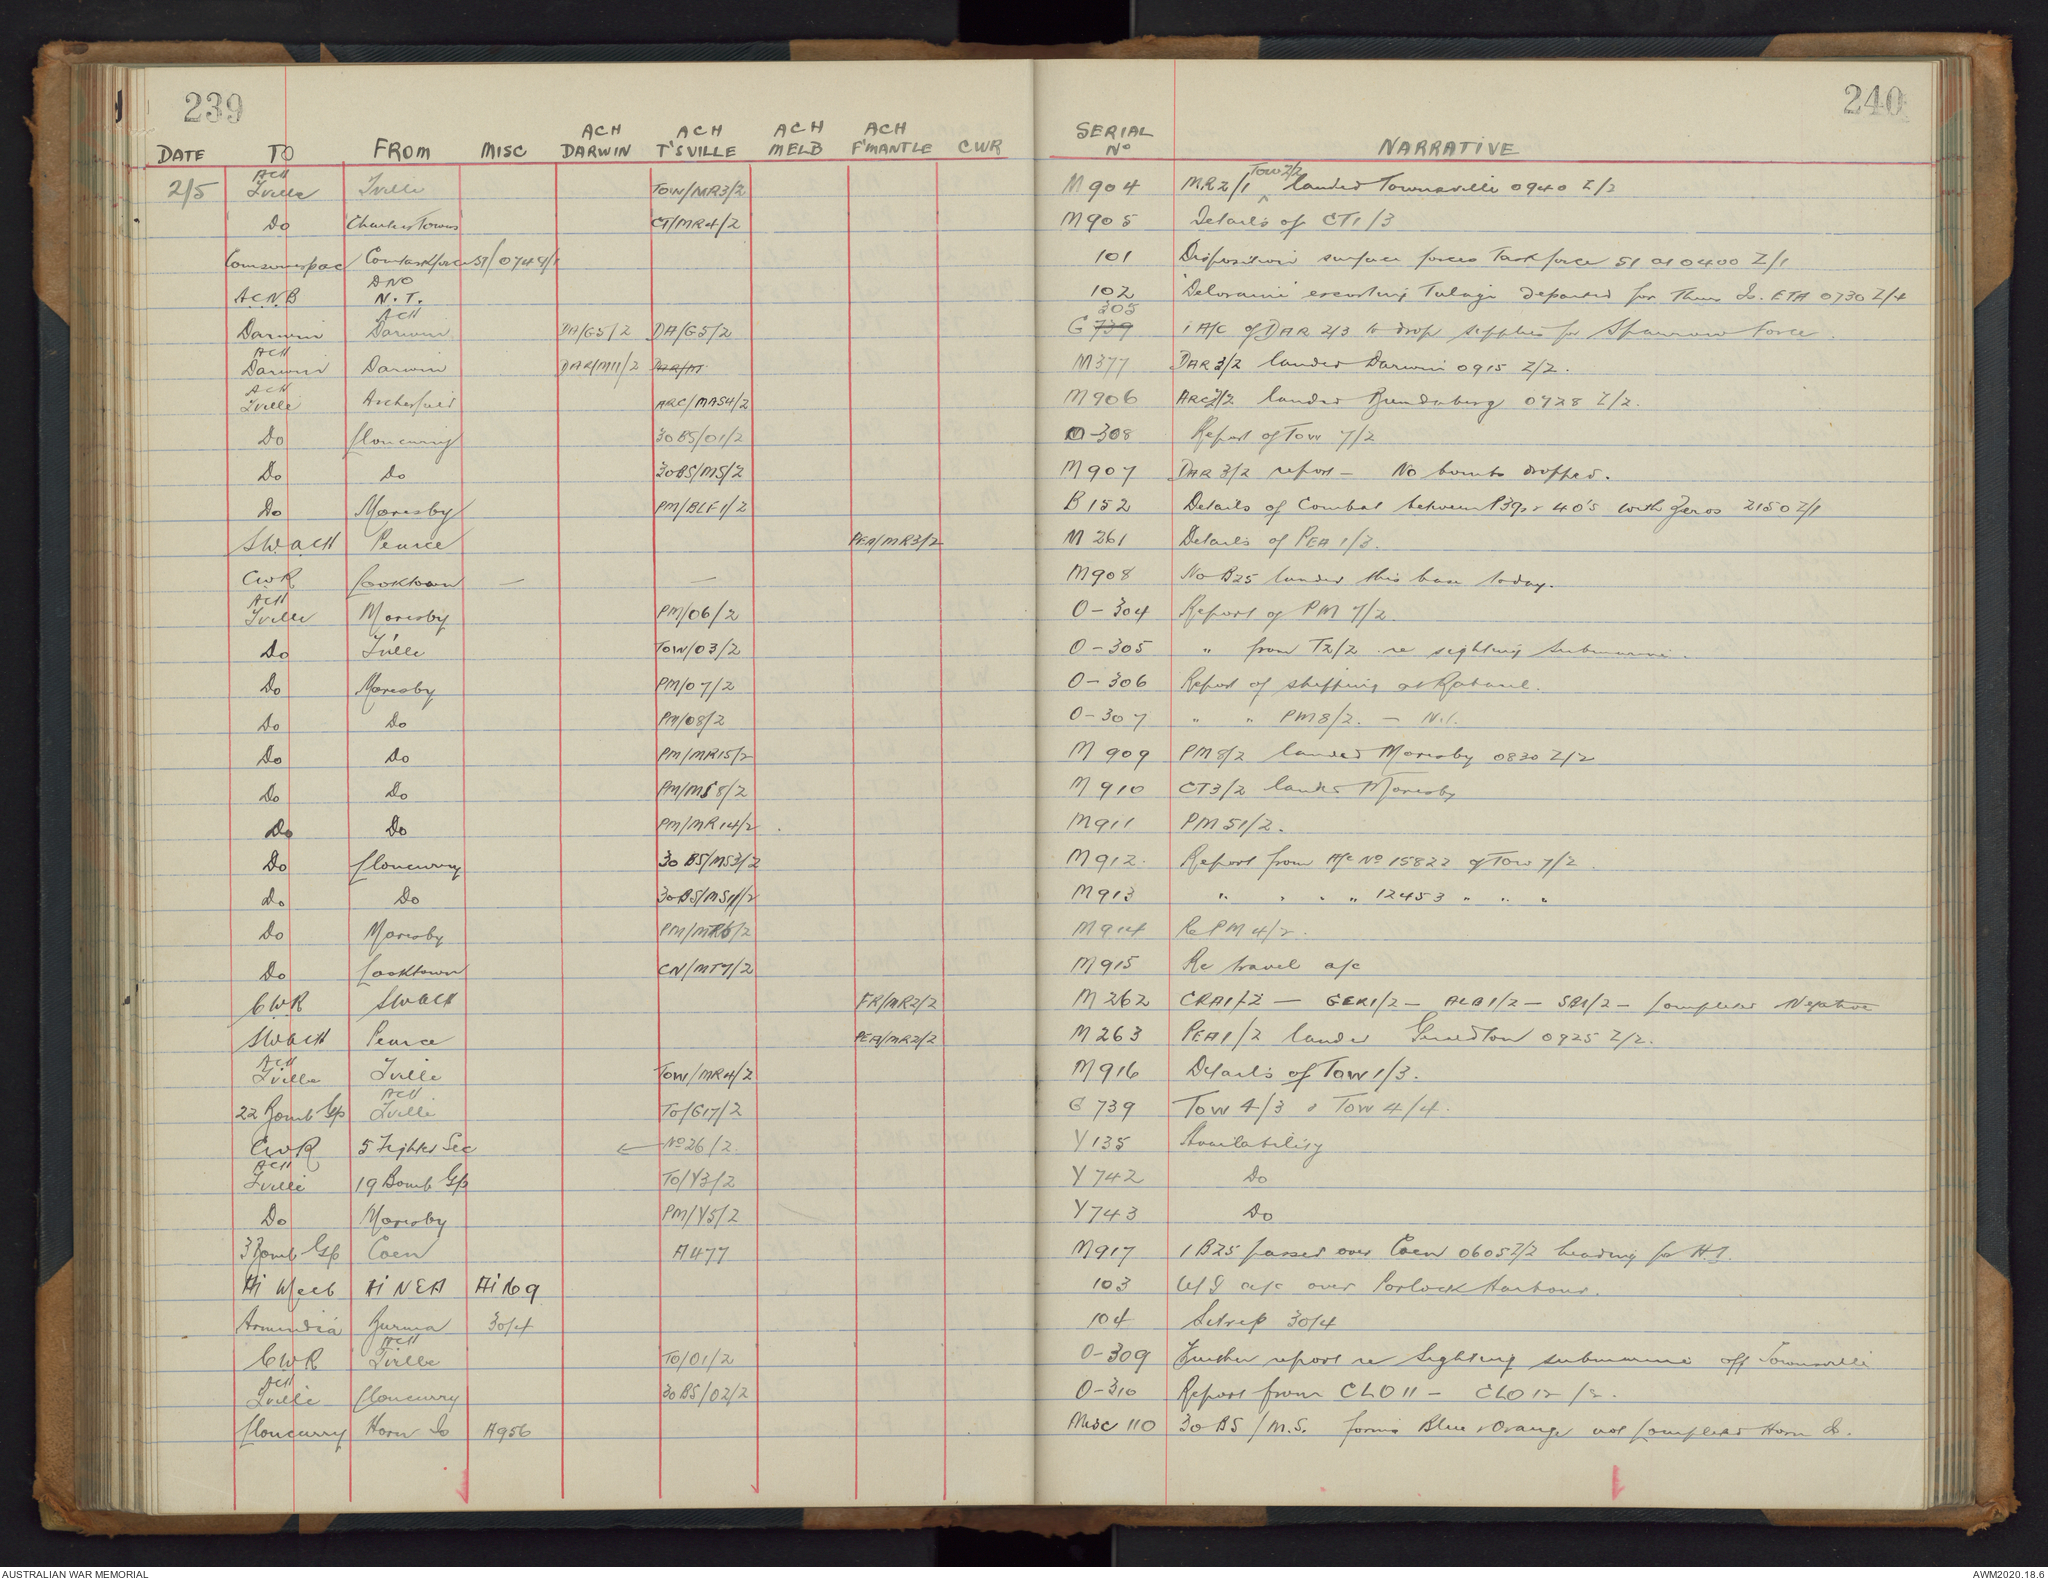 239
240
DATE TO FROM MISC ACH DARWIN ACH T'SVILLE ACH MELB ACH F'MANTLE CWR SERIAL No NARRATIVE
2/5 ACH Tville Tville TOW/MR3/2 M904 MR2/1 Tow 2/2 landed Townsville 0940 Z/2
Do Charters Towers CT/MR4/2 M905 Details of CT1/3
Comsouwespac Comtaskforce 51/0749/1 101 Disposition surface forces Taskforce 51 at 0400 Z/1
ACNB DNO N.T. 102 'Deloraine' escorting Tulagi departed for Thurs Is. ETA 0730 Z/4
Darwin ACH Darwin DA/G5/2 DA/G5/2 G 739 305 1 A/C of DAR 2/3 to drop supplies for Sparrow Force.
ACH Darwin Darwin DAR/M11/2 DAR/M M377 DAR 3/2 landed Darwin 0915 Z/2.
ACH Tville Archerfield ARC/MAS4/2 M906 ARC2/2 landed Bundaberg 0928 Z/2.
Do Cloncurry 30BS/01/2 O-308 Report of Tow 7/2
Do Do 30BS/MS/2 M907 DAR 3/2 report - No bombs dropped.
Do Moresby PM/BLF1/2 B152 Details of Combat between P39s & 40's with Zeros 2150 Z/1
SWACH Pearce PEA/MR3/2 M261 Details of PEA 1/3.
CWR Cooktown — — M908 No B25 landed this base today.
ACH Tville Moresby PM/06/2 O-304 Report of PM 7/2.
Do T'ville TOW/03/2 O-305 " from T2/2 re sighting Submarine.
Do Moresby PM/07/2 O-306 Report of shipping at Rabaul.
Do Do PM/08/2 O-307 " " PM8/2. - Nil.
Do Do PM/MR15/2 M909 PM8/2 landed Moresby 0830 Z/2
Do Do PM/MS8/2 M910 CT3/2 landed Moresby
Do Do PM/MR14/2. M911 PM 51/2.
Do Cloncurry 30 BS/MS3/2 M912. Report from A/c No 15822 of Tow 7/2.
do Do 30BS/MS11/2 M913 " " " " 12453 " " "
Do Moresby PM/MR6/2 M914 Re PM 4/2.
Do Cooktown CN/MT7/2 M915 Re travel a/c
CWR SWACH FR/MR2/2 M262 CRA1/2 — GER1/2 — ALB1/2 — SB1/2 — Completed Negative
SWACH Pearce PEA/MR2/2 M263 PEA1/2 landed Geraldton 0925 Z/2.
ACH Tville Tville TOW/MR4/2 M916 Details of Tow 1/3.
22 Bomb Gp ACH Tville TO/G17/2 G 739 Tow 4/3 & Tow 4/4.
CWR 5 Fighter Sec ← No 26/2. Y135 Availability
ACH Tville 19 Bomb Gp TO/Y3/2 Y742 Do
Do Moresby PM/Y5/2 Y743 Do
3 Bomb Gp Coen A477 M917 1 B25 passed over Coen 0605 Z/2 heading for H.I.
Ai Melb Ai NEA Ai 169 103 U/I a/c over Porlock Harbour.
Armindia Burma 30/4 104 Sitrep 30/4
CWR ACH Tville TO/01/2 O-309 Further report re sighting submarine off Townsville
ACH Tville Cloncurry 30BS/02/2 O-310 Report from CLO 11 - CLO 12/2.
Cloncurry Horn Is A956 Misc 110 30 BS/M.S. forms Blue & Orange not completed Horn Is.
AUSTRALIAN WAR MEMORIAL
AWM2020.18.6